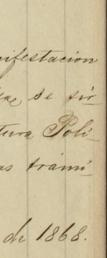 nifestacion
se de sir
tura Poli
as trámi
de 1868.